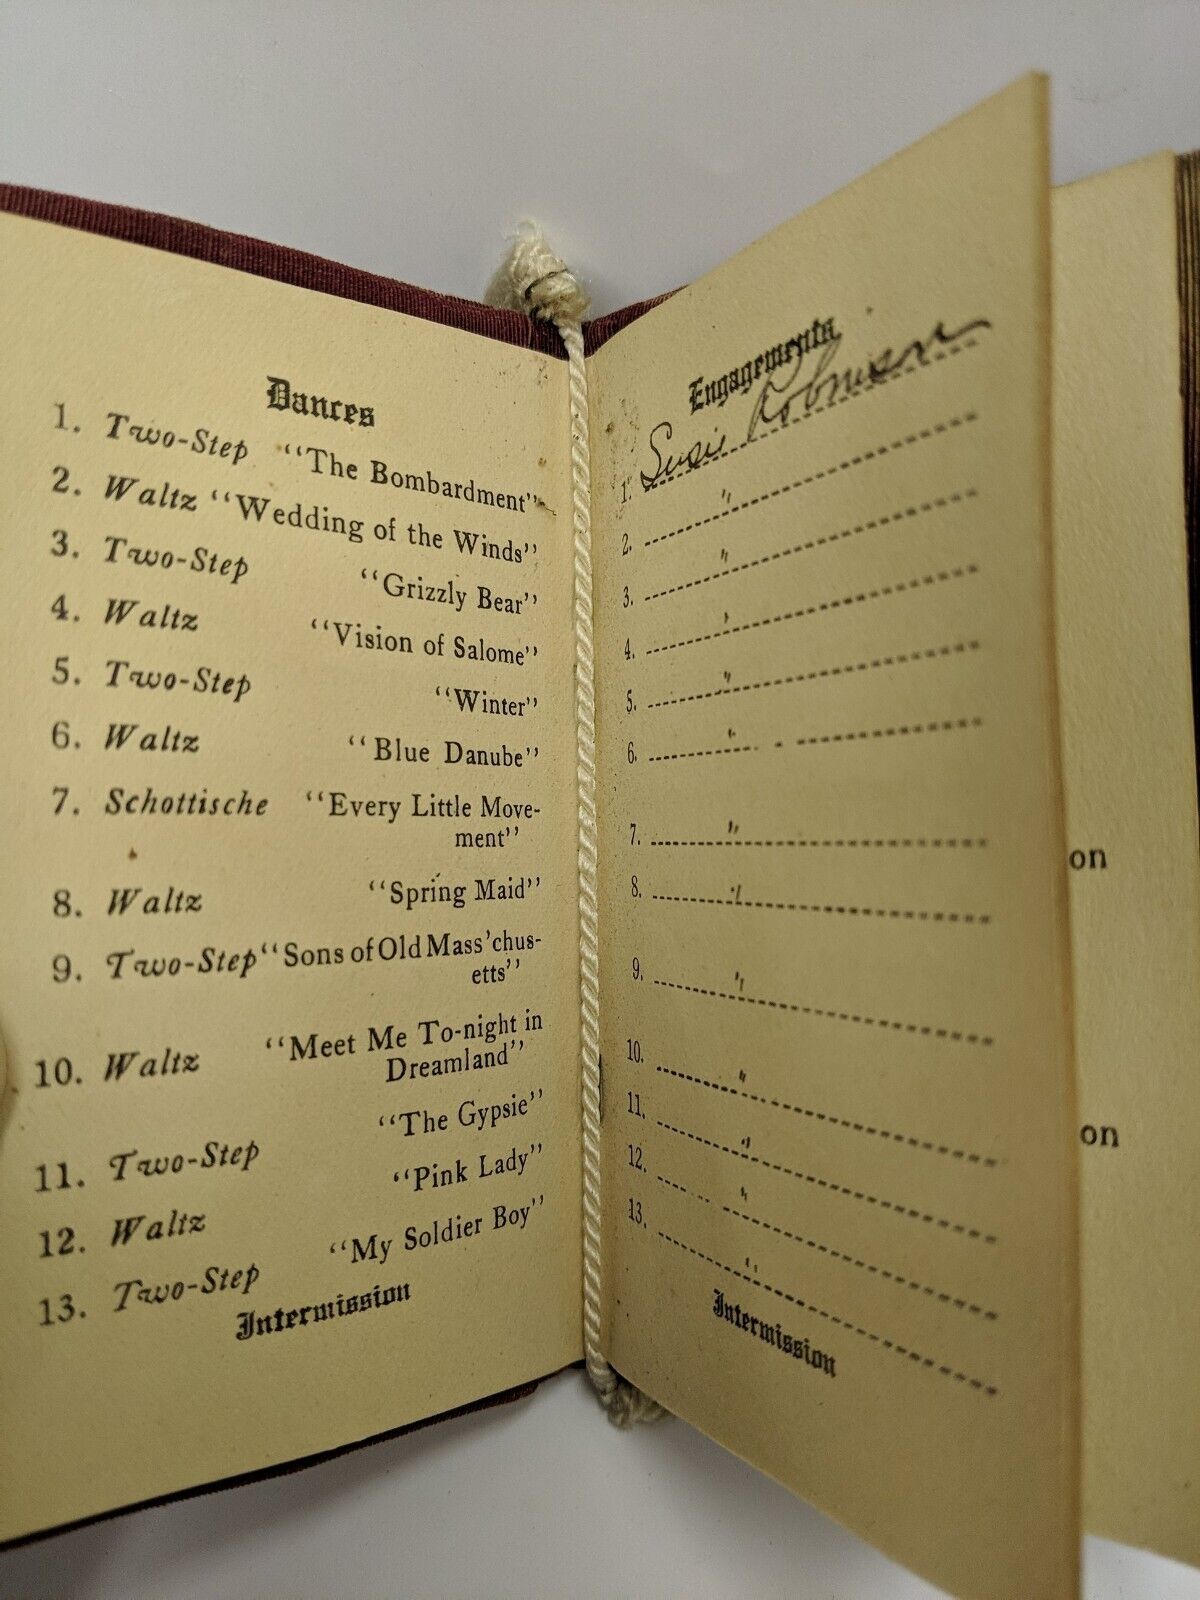 Dances
1. Two-Step "The Bombardment"
2. Waltz "Wedding of the Winds"
3. Two-Step "Grizzly Bear"
4. Waltz "Vision of Salome"
5. Two-Step "Winter"
6. Waltz "Blue Danube"
7. Schottische "Every Little Move-
ment"
8. Waltz "Spring Maid"
9. Two-Step "Sons of Old Mass'chus-
etts"
10. Waltz "Meet Me To-night in
Dreamland"
11. Two-Step "The Gypsie"
12. Waltz "Pink Lady"
13. Two-Step "My Soldier Boy"
Intermission
Engagements
1. Susie Robinson
2. "
3. "
4. "
5. "
6. "
7. "
8. "
9. "
10. "
11. "
12. "
13. "
Intermission
on
on